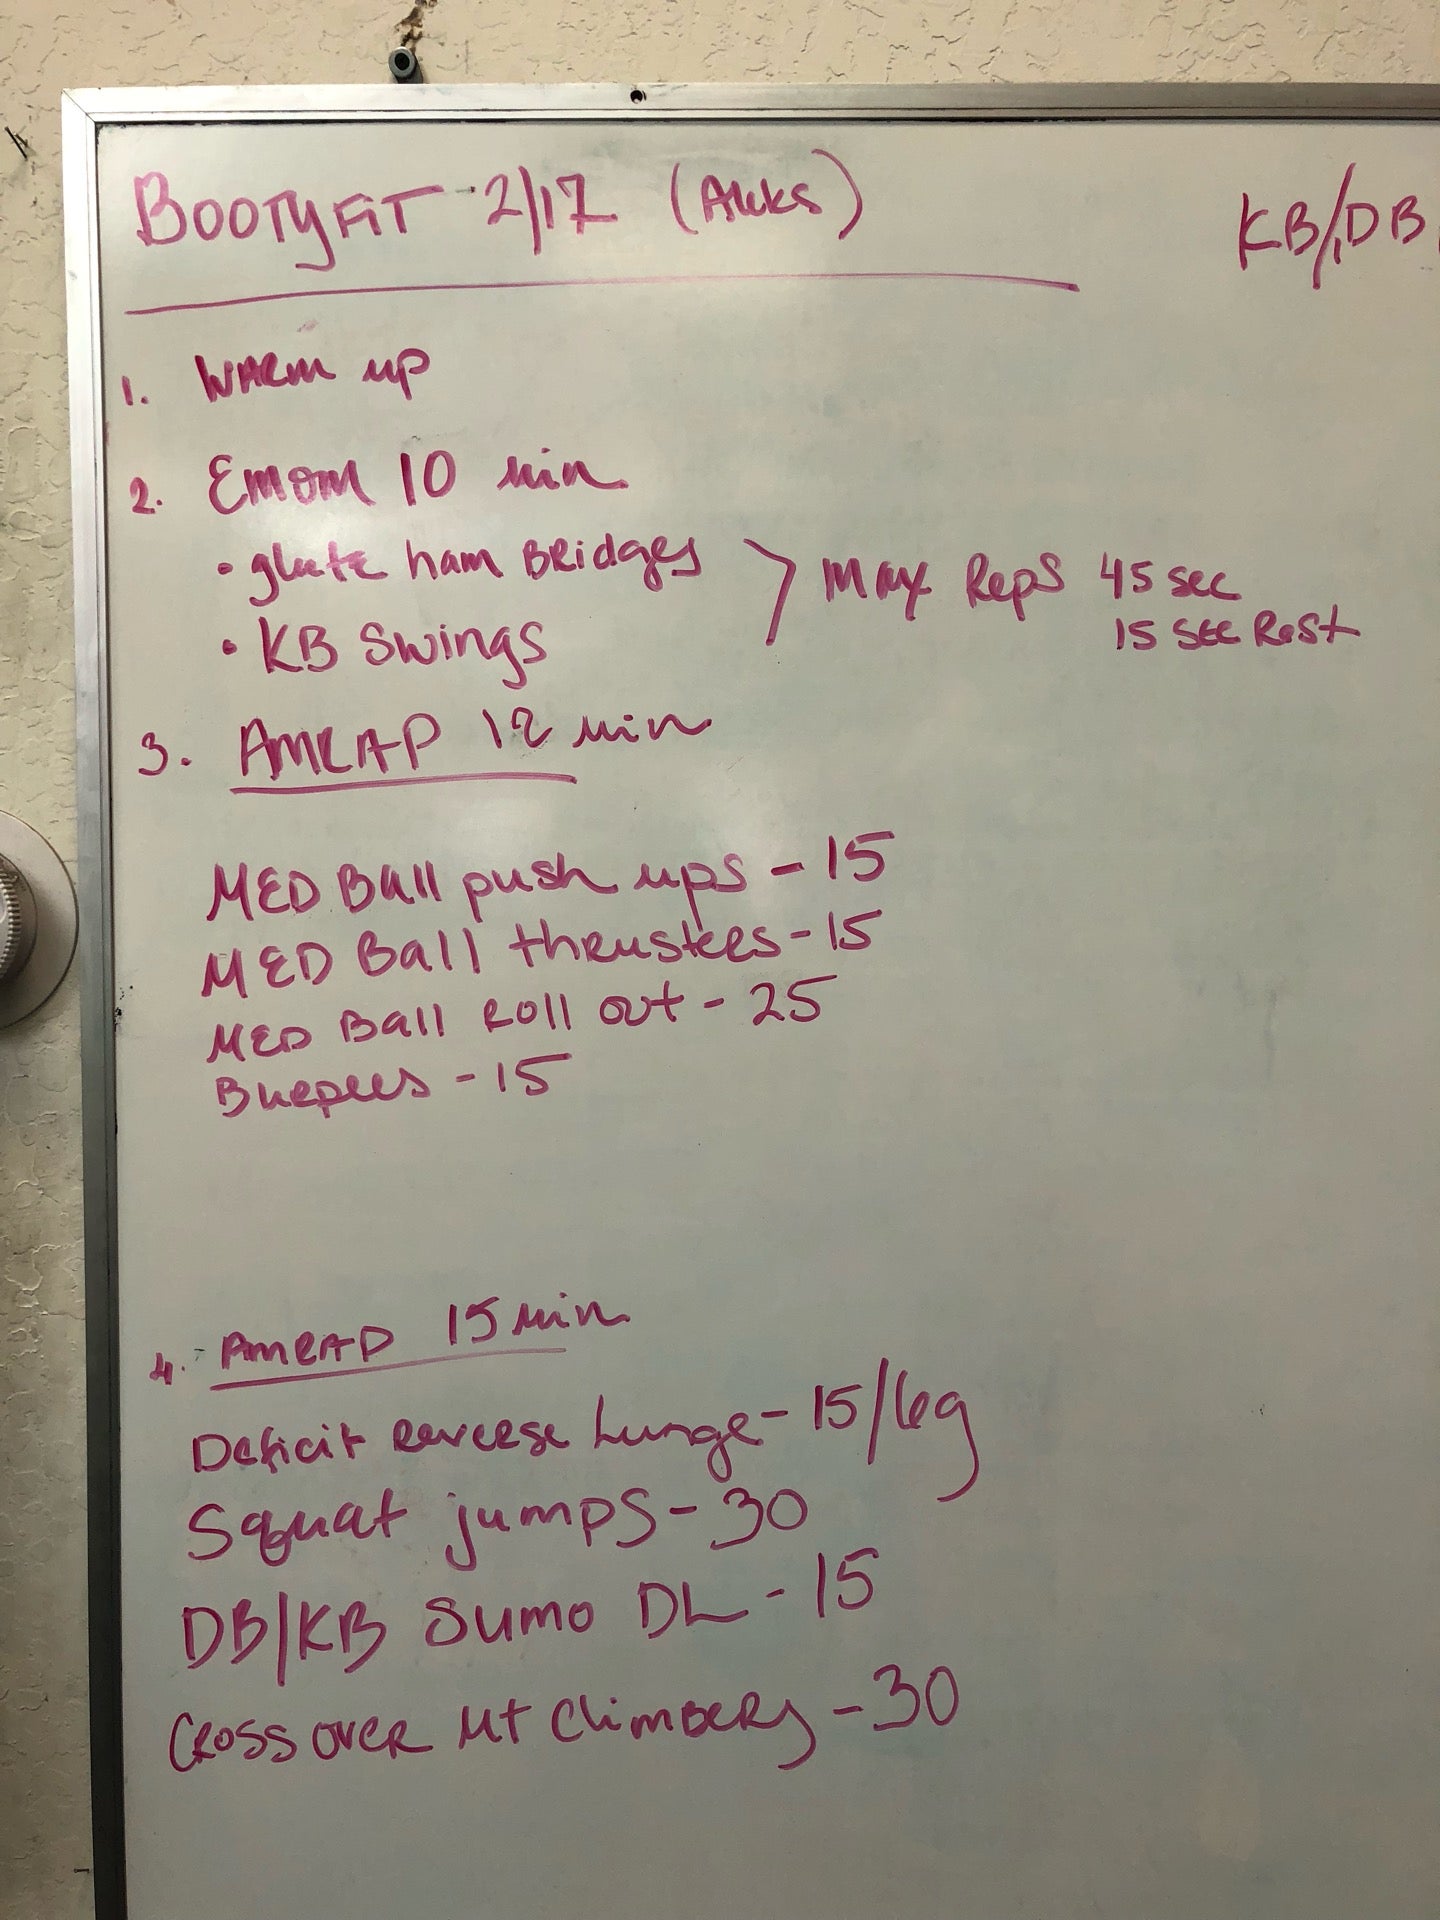 BOOTYFIT 2/17 (Aleks)
KB/DB
1. WARM up
2. EMOM 10 min
• glute ham BRidges
• KB Swings
> MAX Reps 45 sec
15 sec Rest
3. AMRAP 12 min
MED Ball push ups - 15
MED Ball thrusters - 15
MED Ball Roll out - 25
Burpees - 15
4. AMRAP 15 min
Deficit Reverse Lunge - 15/leg
Squat jumps - 30
DB/KB Sumo DL - 15
Cross over Mt Climbers - 30